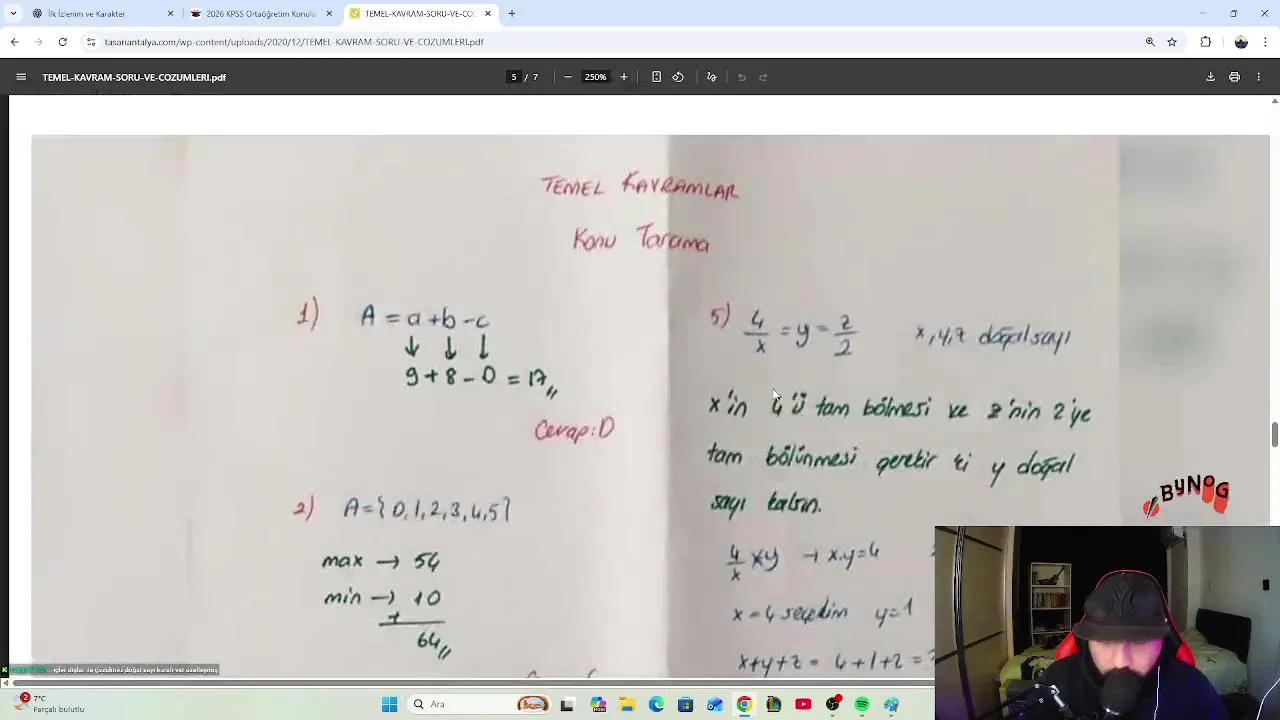 İlk İzlenim ve Karakter
2026 KPSS Ortaöğretim Konula
TEMEL-KAVRAM-SORU-VE-COZUMLERI
tasariantalya.com/wp-content/uploads/2020/12/TEMEL-KAVRAM-SORU-VE-COZUMLERI.pdf
TEMEL-KAVRAM-SORU-VE-COZUMLERI.pdf
5 / 7
250%
TEMEL KAVRAMLAR
Konu Tarama
1) A = a + b - c
9 + 8 - 0 = 17,,
Cevap: D
2) A = { 0, 1, 2, 3, 4, 5 }
max → 54
min → 10
+
64,,
5) 4/x = y = z/2 x, y, z doğal sayı
x'in 4'ü tam bölmesi ve z'nin 2'ye
tam bölünmesi gerekir ki y doğal
sayı kalsın.
4/x xy → x.y=4
x = 4 seçedim y=1
x+y+z = 4+1+2 =
BYNOG
içler dışlar ile çözülmez doğal sayı kuralı var özelleşmiş
2
7°C
Parçalı bulutlu
Ara